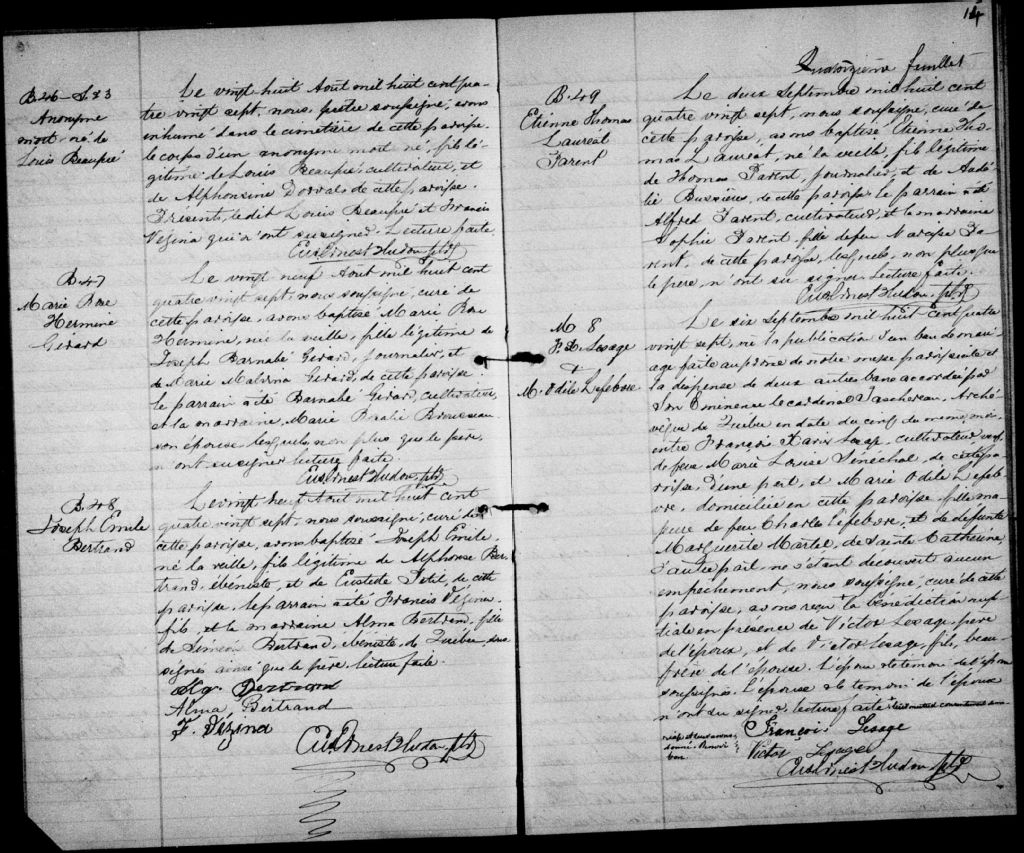 B. 46 — S. 23
Anonyme
mort-né de
Louis Beaupré
Le vingt huit Aout mil huit cent qua-
tre vingt sept, nous, prêtre soussigné, avons
inhumé dans le cimetière de cette paroisse
le corps d'un anonyme mort né, fils lé-
gitime de Louis Beaupré, cultivateur, et
de Alphonsine Dorval de cette paroisse.
Présents, ledit Louis Beaupré et Francis
Vézina qui n'ont su signer. Lecture faite.
Hudon, ptre
B. 47
Marie Rose
Hermine
Gérard
Le vingt neuf Aout mil huit cent
quatre vingt sept, nous soussigné, curé de
cette paroisse, avons baptisé Marie Rose
Hermine, née la veille, fille légitime de
Joseph Barnabé Gérard, journalier, et
de Marie Malvina Gérard, de cette paroisse
le parrain a été Barnabé Gérard, cultivateur,
et la marraine, Marie Brousseau
son épouse lesquels non plus que le père
n'ont su signer lecture faite.
Hudon, ptre
B. 48
Joseph Emile
Bertrand
Le vingt neuf Aout mil huit cent
quatre vingt sept, nous soussigné, curé de
cette paroisse, avons baptisé Joseph Emile,
né la veille, fils légitime de Alphonse Ber-
trand, ébéniste, et de Petit, de cette
paroisse. Le parrain a été Francis Vézina
fils, et la marraine Alma Bertrand, fille
de Siméon Bertrand, ébéniste, de Québec, sous-
signés ainsi que le père, lecture faite.
Bertrand
Alma Bertrand
F. Vézina
Hudon, ptre
14
Quatorzième feuillet
B. 49
Etienne Thomas
Lauréat
Parent
Le deux Septembre mil huit cent
quatre vingt sept, nous soussigné, curé de
cette paroisse, avons baptisé Etienne Tho-
mas Lauréat, né la veille, fils légitime
de Thomas Parent, journalier, et de
Bussières, de cette paroisse le parrain a été
Alfred Parent, cultivateur, et la marraine
Sophie Parent fille de feu Narcisse Pa-
rent, de cette paroisse, lesquels, non plus que
le père, n'ont su signer. Lecture faite.
Hudon, ptre
M. 8
F. X. Lesage
+
M. Odile Lefebvre
Le six Septembre mil huit cent quatre
vingt sept, vu la publication d'un ban de mari-
age faite au prône de notre messe paroissiale et
la dispense de deux autres bans accordée par
Son Eminence le cardinal Taschereau, Arche-
vêque de Québec en date du cinq du même mois
entre François Xavier Lesage, cultivateur, veuf
de feue Marie Louise Sénéchal, de cette pa-
roisse, d'une part, et Marie Odile Lefeb-
vre, domiciliée en cette paroisse, fille ma-
jeure de feu Charles Lefebvre, et de defunte
Marguerite Martel, de Sainte Catherine,
d'autre part, ne s'étant découvert aucun
empêchement, nous soussigné, curé de cette
paroisse, avons reçu la bénédiction nup-
tiale en présence de Victor Lesage, père
de l'époux, et de Victor Lesage, fils, beau-
frère de l'épouse. L'époux et le temoin de l'épouse
soussignés. L'épouse et le temoin de l'époux
n'ont su signer, lecture faite
François Lesage
Victor Lesage
Hudon, ptre